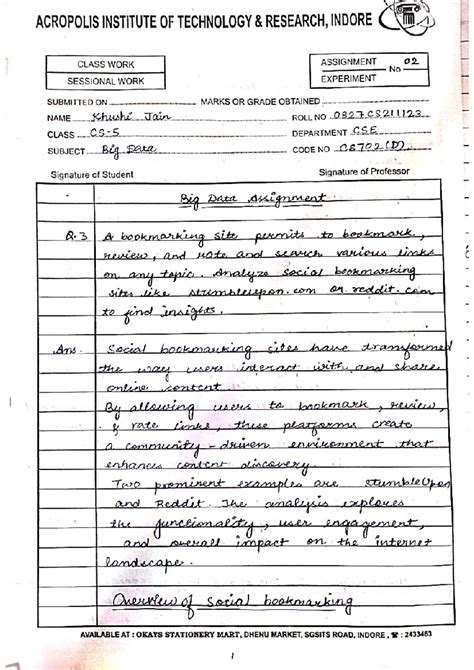 ACROPOLIS INSTITUTE OF TECHNOLOGY & RESEARCH, INDORE
CLASS WORK
SESSIONAL WORK
ASSIGNMENT 02
No
EXPERIMENT
SUBMITTED ON MARKS OR GRADE OBTAINED
NAME Khushi Jain ROLL NO 0827CS211123
CLASS CS-5 DEPARTMENT CSE
SUBJECT Big Data CODE NO CS702 (D)
Signature of Student Signature of Professor
Big Data Assignment
Q.3 A bookmarking site permits to bookmark,
review, and rate and search various links
on any topic. Analyze social bookmarking
sites like stumbleupon.com or reddit.com
to find insights.
Ans. Social bookmarking sites have transformed
the way users interact with and share
online content.
By allowing users to bookmark, review,
& rate links, these platforms create
a community-driven environment that
enhances content discovery.
Two prominent examples are StumbleUpon
and Reddit. The analysis explores
the functionality, user engagement,
and overall impact on the internet
landscape.
Overview of Social bookmarking
AVAILABLE AT : OKAYS STATIONERY MART, DHENU MARKET, SGSITS ROAD, INDORE, ☎ : 2433463
1